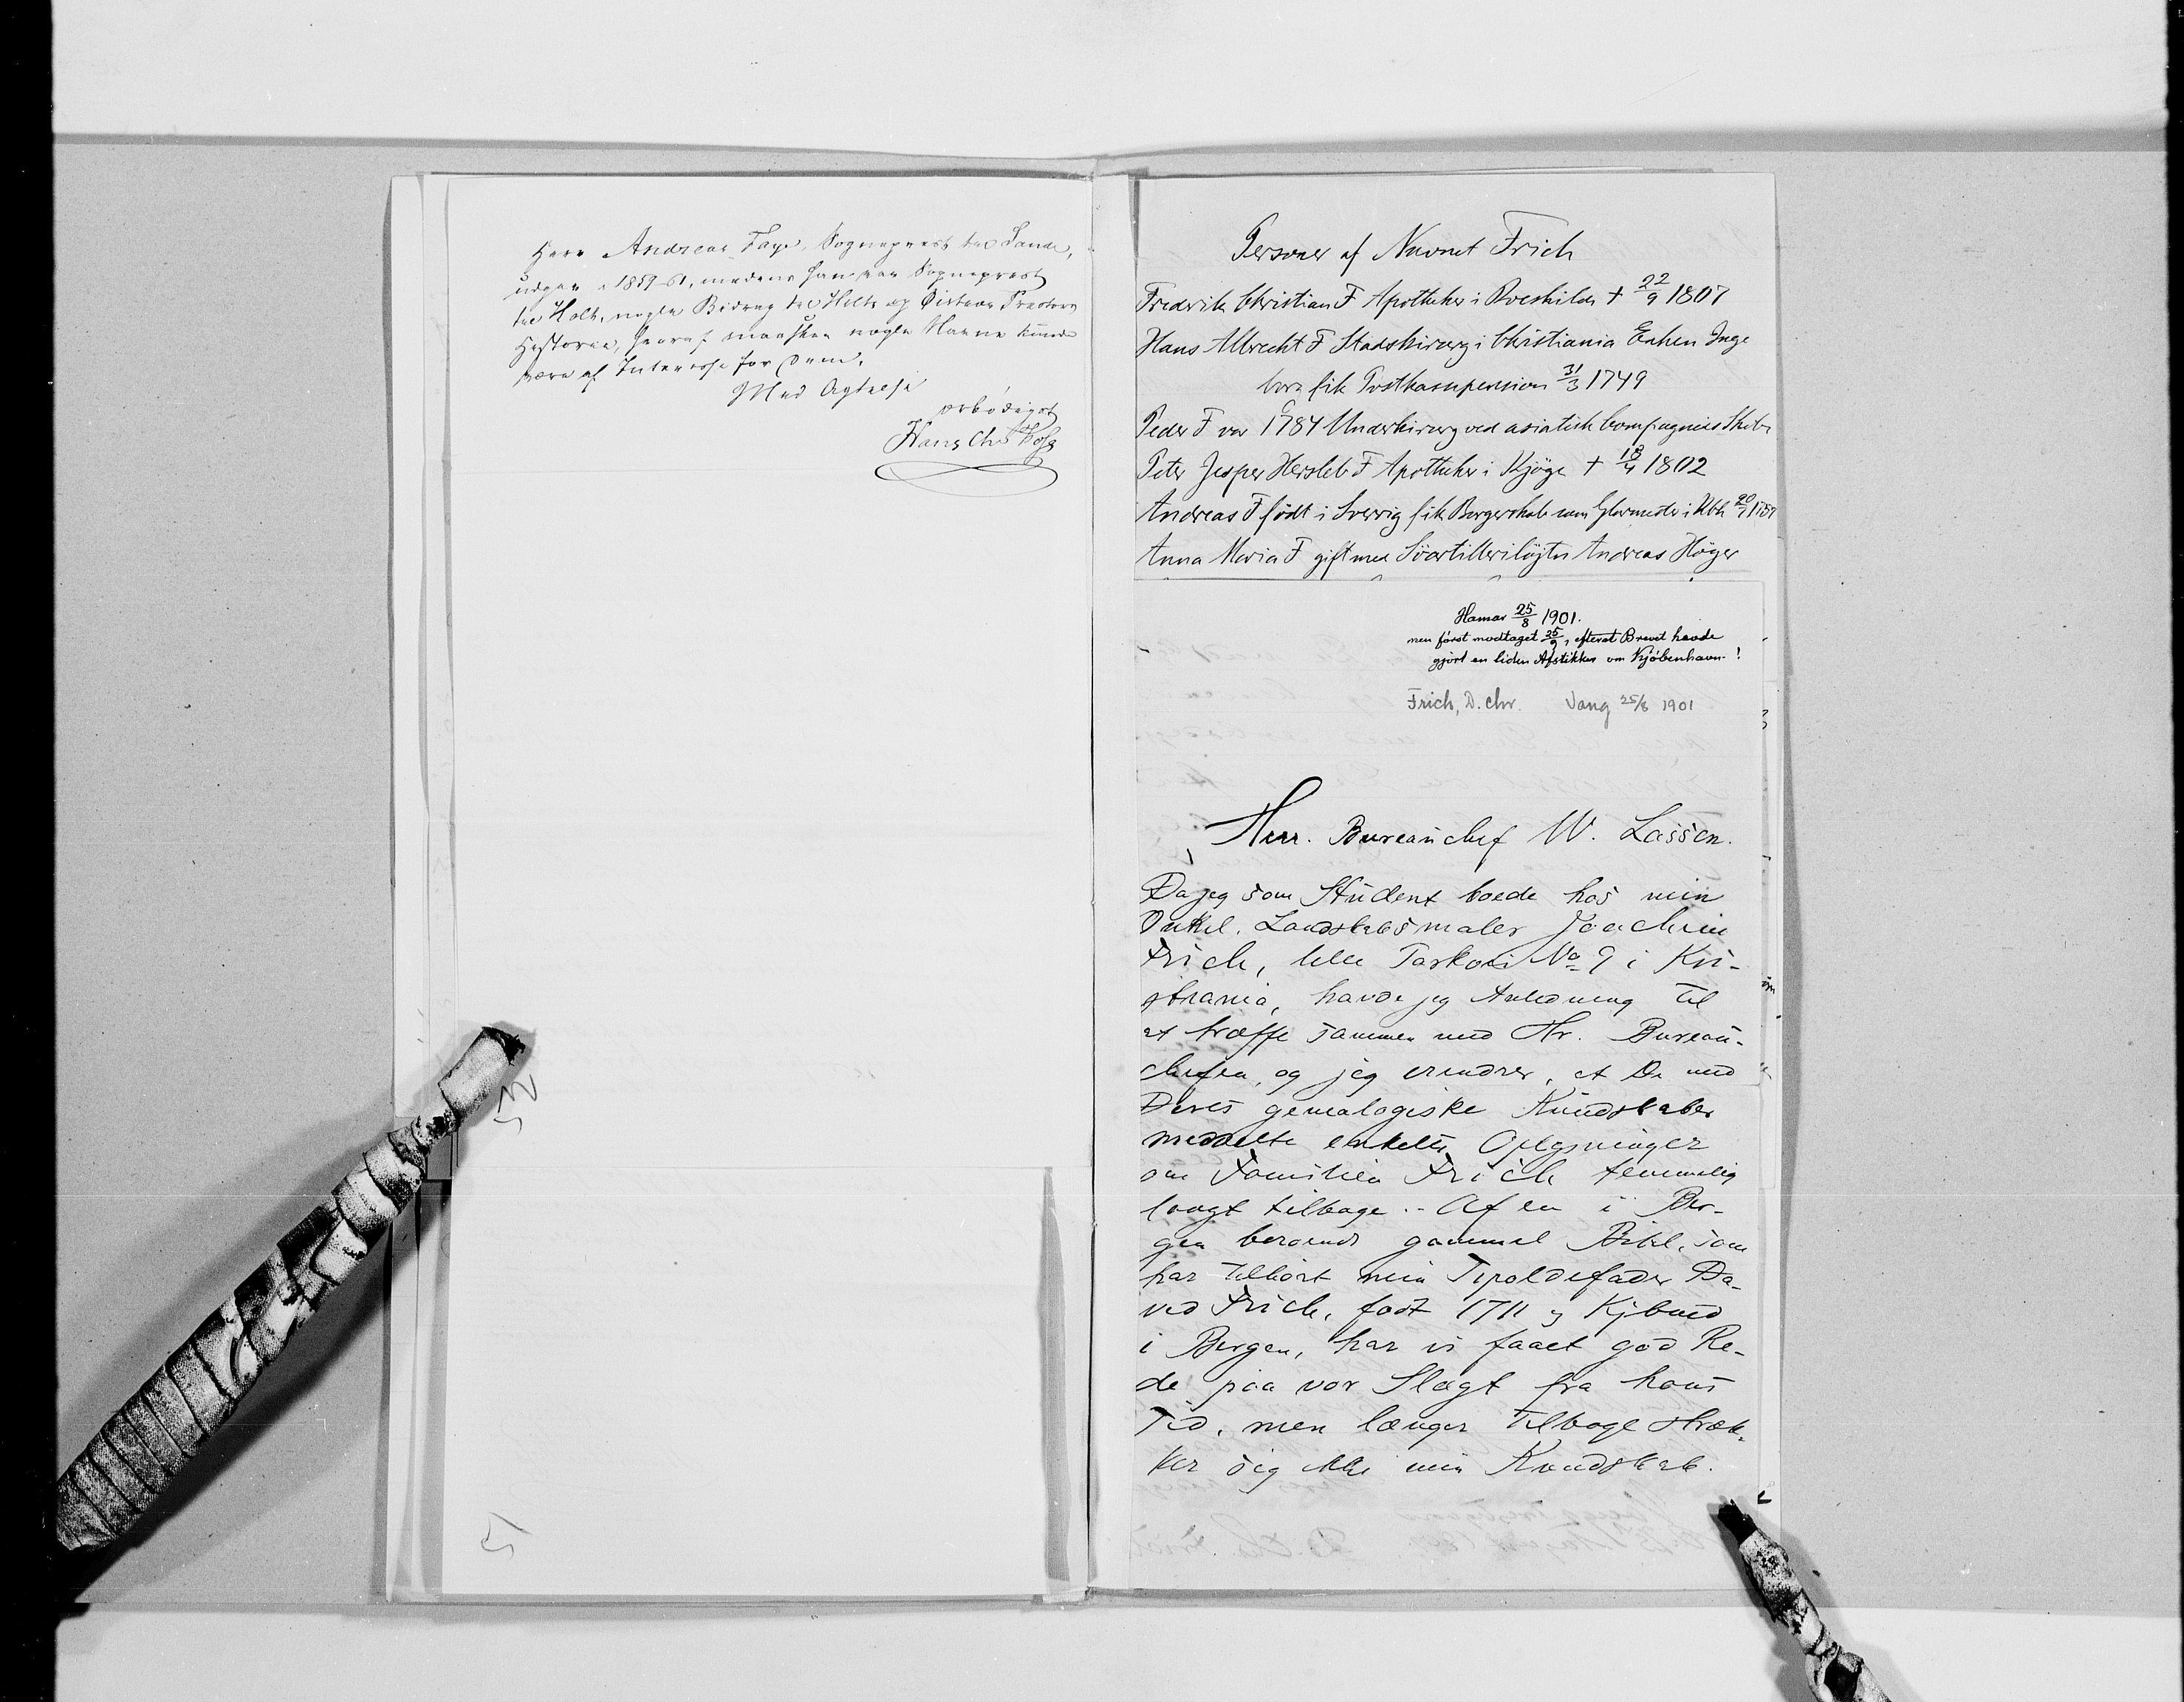 Herr Andreas Faye, Sogneprest til Sande,
udgav i 1859-61, medens han var Sogneprest
til Holt, nogle Bidrag til Holts og Præsters
Historie, hvoraf maaskee nogle Navne kunde
være af Interesse for Dem.
Med Agtelse
ærbødigst
Hans Chr
Personer af Navnet Frich
Frederik Christian F Apotheker i Roeskilde + 22/9 1807
Hans Albrecht F Stadskirurg i Christiania Enken Inge
borg fik Postkassepension 31/3 1749
Peder F var 1784 Underkirurg ved asiatisk Compagnies Skibe
Peter Jesper Hersleb F Apotheker i Kjöge + 18/4 1802
Andreas F födt i Sverrig fik Borgerskab som Glarmester i Kbh 20/7
Anna Maria F gift med Söartillerilöjtn Andreas Höyer
Hamar 25/8 1901.
men först modtaget 25/9, efterat Brevet havde
gjört en liden Afstikker om Kjöbenhavn!
Frich, D. Chr. Vang 25/8 1901
Herr. Bureauchef W. Lassen.
Da jeg som Student boede hos min
Onkel, Landskabsmaler Joachim
Frich, lille No 9 i Kri-
stiania, havde jeg Anledning til
at træffe sammen med Hr. Bureau-
chefen, og jeg erindrer, at De med
Deres genealogiske Kundskaber
meddelte enkelte Oplysninger
om Familien Frich temmelig
langt tilbage. - Af en i Ber-
gen beroende gammel Bibel, som
har tilhört min Tipoldefader Da-
vid Frich, født 1711 og Kjbmd
i Bergen, har vi faaet god Re-
de paa vor Slægt fra hans
Tid, men længer tilbage stræk-
ker sig ikke min Kundskab.